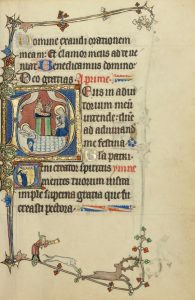 Domine exaudi orationem
meam: et clamor meus ad te ve
niat. Benedicamus domino.
Deo gratias. A prime.
Deus in adiu
torium meum
intende. due
ad adiuuand
me festina.
Gla patri.
Veni creator spiritus ympne
mentes tuorum uisita
imple superna gratia que tu
creasti pectora.